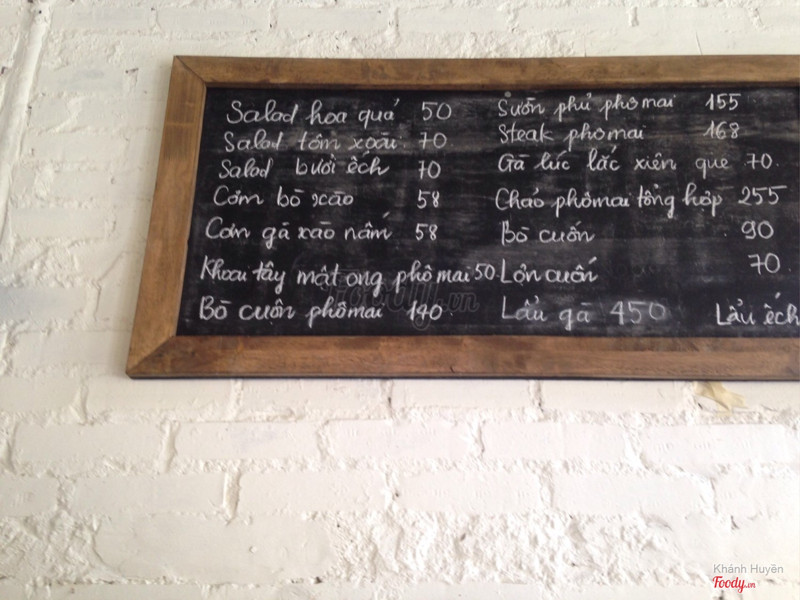 Salad hoa quả 50
Salad tôm xoài 70
Salad bưởi ếch 70
Cơm bò xào 58
Cơm gà xào nấm 58
Khoai tây mật ong phômai 50
Bò cuộn phômai 140
Sườn phủ phômai 155
Steak phomai 168
Gà lúc lắc xiên que 70
Cháo phômai tổng hợp 255
Bò cuốn 90
Lợn cuốn 70
Lẩu gà 450 Lẩu ếch
Foody.vn
Khánh Huyền
Foody.vn